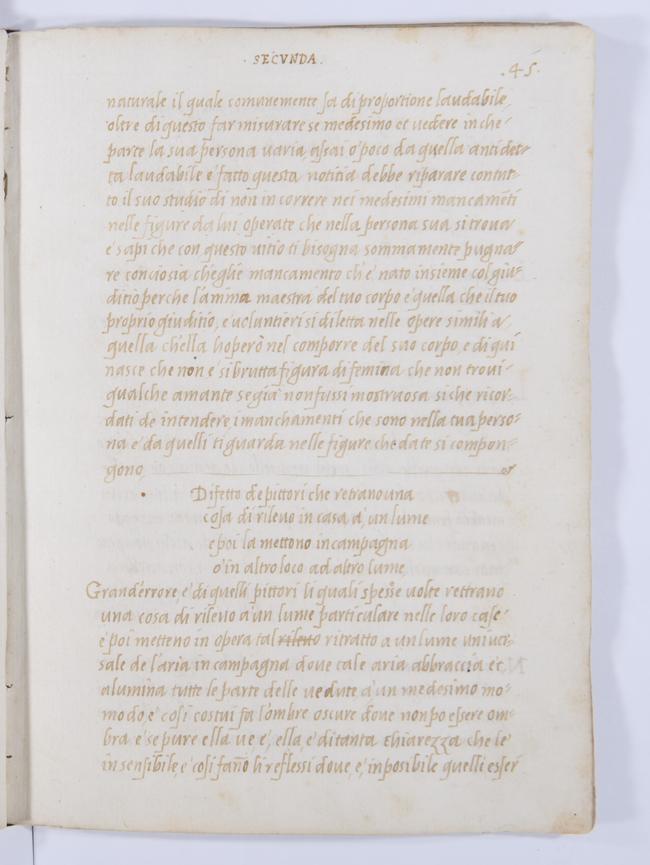 · SECVNDA ·
· 45 ·
naturale il quale comunemente sa di proportione laudabile,
oltre di questo far misurare se medesimo et vedere in che
parte la sua persona varia assai o poco da quella antidet-
ta laudabile e fatto questa notitia debbe riparare con tut-
to il suo studio di non in correre nei medesimi mancamēti
nelle figure da lui operate che nella persona sua si trova
e sapi che con questo vitio ti bisogna sommamente pugna-
re conciosia che glie mancamento ch'e nato insieme col giu-
ditio perche l'amina maestra del tuo corpo e quella che il tuo
proprio giuditio, e voluntieri si diletta nelle opere simili a
quella ch'ella hoperò nel comporre del suo corpo, e di qui
nasce che non e si brutta figura di femina che non trovi
qualche amante se già non fussi mostruosa si che ricor-
dati de intendere i manchamenti che sono nella tua perso-
na e da quelli ti guarda nelle figure che da te si compon-
gono
Difetto de pittori che retrano una
cosa di rilevo in casa a un lume
e poi la mettono in campagna
o in altro loco ad altro lume
Grand'errore, e di quelli pittori li quali spesse volte rettrano
una cosa di rilevo a un lume particulare nelle loro case
e poi metteno in opera tal rilevo ritratto a un lume univer-
sale de l'aria in campagna dove tale aria abbraccia et
alumina tutte le parte delle vedute a un medesimo mo-
mo do, e cosi costui fa l'ombre oscure dove non po essere om-
bra e se pure ella ve e, ella e di tanta chiarezza che le
insensibile, e cosi fano li reflessi dove, e, inposibile quelli esser